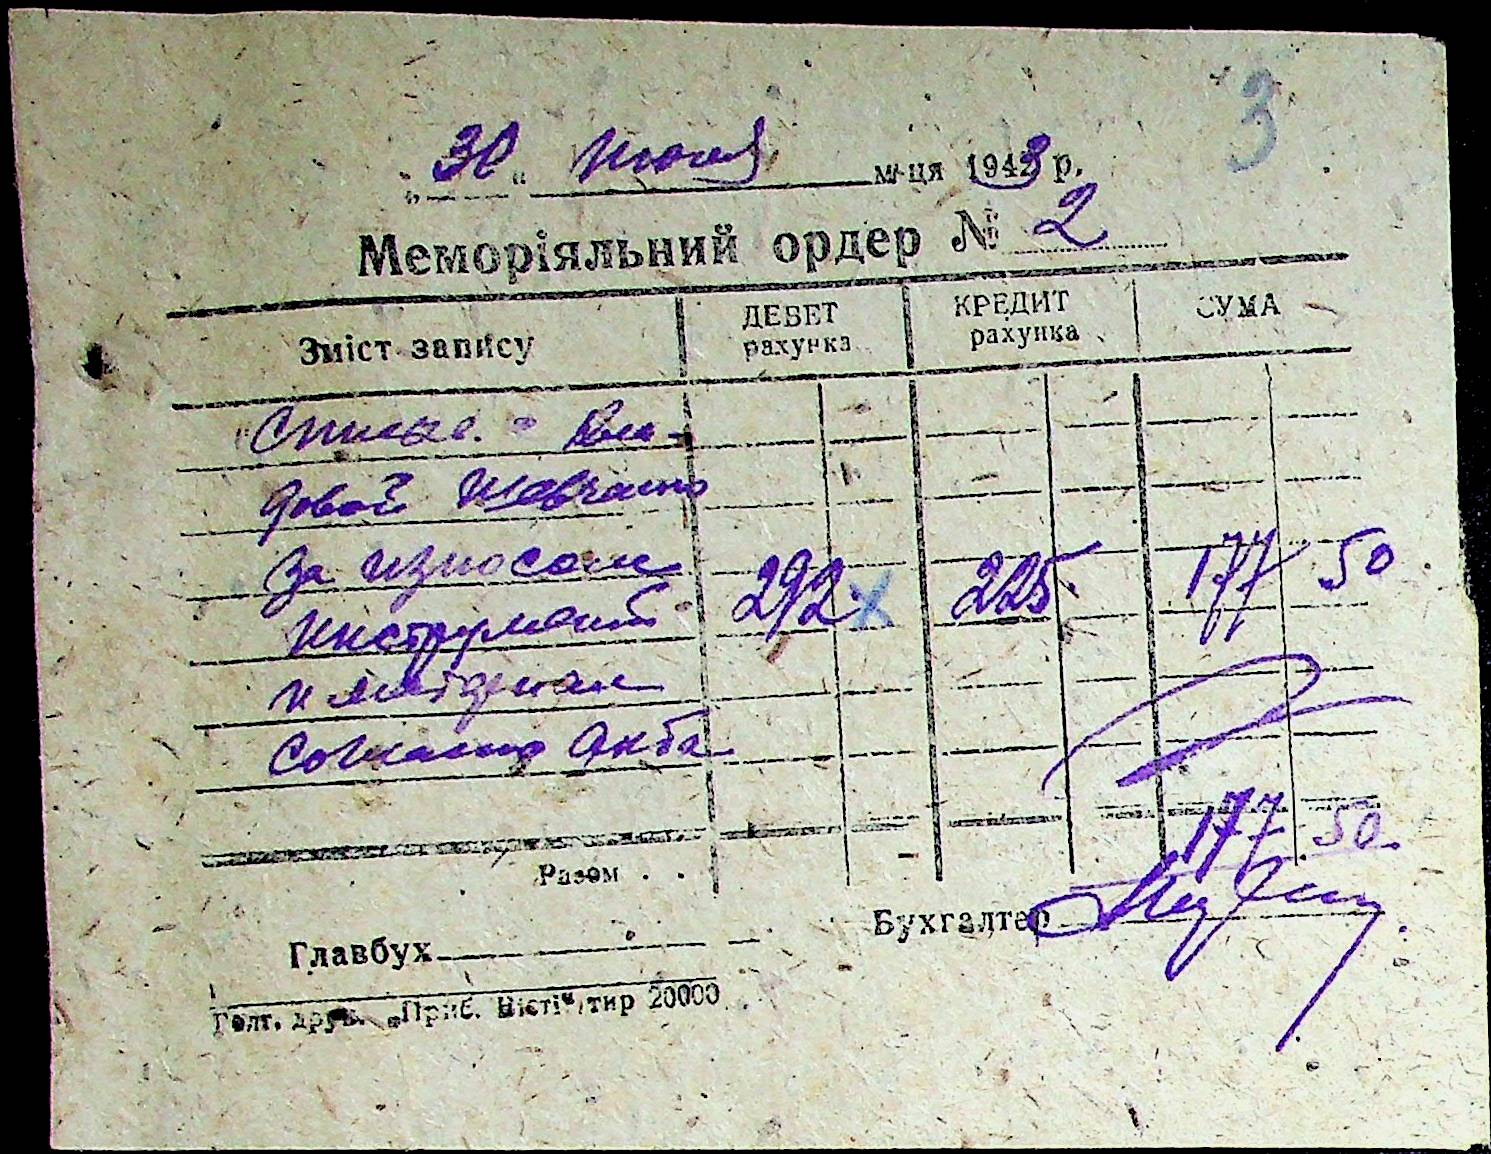 3
„30“ Июня м-ця 1943 р.
Меморіяльний ордер № 2
Зміст запису ДЕБЕТ рахунка КРЕДИТ рахунка СУМА
Списыв. - Кла-
довой
за износом 292 х 225 177 50
инструмент
и
согласно Акта
177 50
Разом . .
Бухгалтер
Главбух
Голт. друк. „Приб. Вісті“, тир 20000